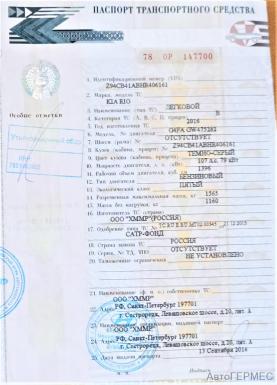 ПАСПОРТ ТРАНСПОРТНОГО СРЕДСТВА
78 ОР 147700
Особые отметки
1. Идентификационный номер (VIN)
Z94CB41ABHR406161
2. Марка, модель ТС
KIA RIO
3. Наименование (тип ТС) ЛЕГКОВОЙ
4. Категория ТС (A, B, C, D, прицеп) B
5. Год изготовления ТС 2016
6. Модель, № двигателя G4FA GW475282
7. Шасси (рама) № ОТСУТСТВУЕТ
8. Кузов (кабина, прицеп) № Z94CB41ABHR406161
9. Цвет кузова (кабины, прицепа) ТЕМНО-СЕРЫЙ
10. Мощность двигателя, л.с. (кВт) 107 л.с. 79 кВт
11. Рабочий объем двигателя, куб. см 1396
12. Тип двигателя БЕНЗИНОВЫЙ
13. Экологический класс ПЯТЫЙ
14. Разрешенная максимальная масса, кг 1565
15. Масса без нагрузки, кг 1160
16. Изготовитель ТС (страна)
ООО "ХММР"(РОССИЯ)
17. Одобрение типа ТС №
21.12.2015
САТР-ФОНД
18. Страна вывоза ТС РОССИЯ
19. Серия, № ТД, ТПО ОТСУТСТВУЕТ
20. Таможенные ограничения НЕ УСТАНОВЛЕНО
21. Наименование (ф. и. о.) собственника ТС
ООО "ХММР"
22. Адрес РФ, Санкт-Петербург 197701
г. Сестрорецк, Левашовское шоссе, д.20, лит. А
23. Наименование организации, выдавшей паспорт
ООО "ХММР"
24. Адрес РФ, Санкт-Петербург 197701
г. Сестрорецк, Левашовское шоссе, д.20, лит. А
25. Дата выдачи паспорта 13 Сентября 2016
Подпись
АвтоГЕРМЕС